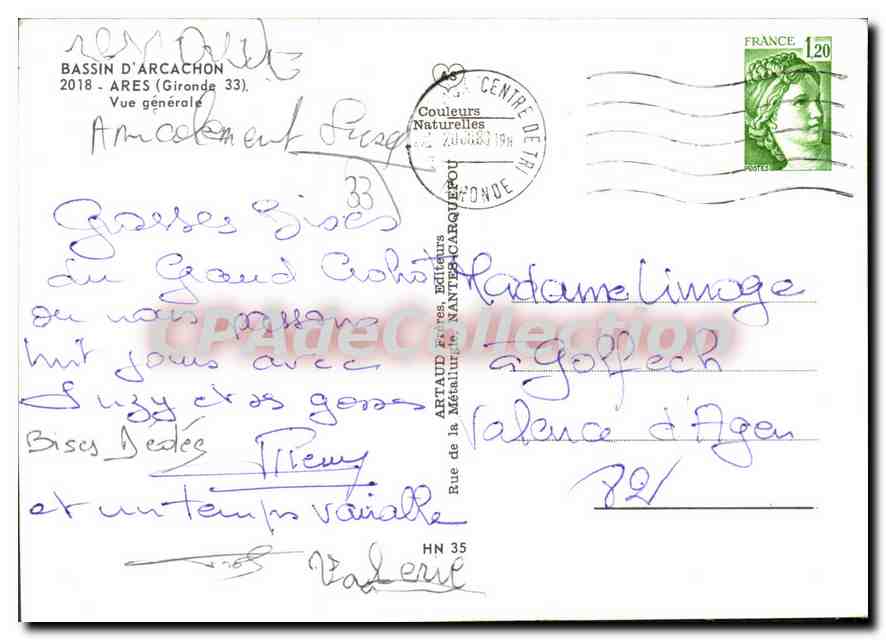 BASSIN D'ARCACHON
2018 - ARES (Gironde 33).
Vue générale
Amicalement Suzy
33
Grosses Bises
du Grand Crohôt
ou nous passons
huit jours avec
Suzy et ses gosses
Bises Dédée
Rémy
et un temps variable
Valerie
AS
Couleurs
Naturelles
ARTAUD Frères, Editeurs
Rue de la Métallurgie, NANTES-CARQUEFOU
HN 35
CENTRE DE TRI
GIRONDE
19H
FRANCE 1,20
POSTES
Madame Limoge
à Golfech
Valence d'Agen
82
CPAdeCollection